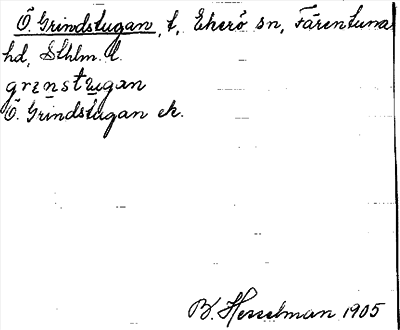 Ö. Grindstugan, t, Ekerö sn, Färentuna
hd, Sthlm. l.
grinstugan
Ö. Grindstugan ek.
B. Hesselman 1905